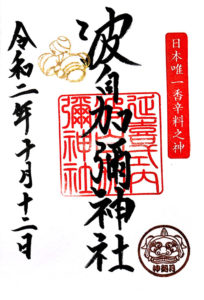 日本唯一香辛料之神
波自加彌神社
延喜式内
彌神社
令和二年十月十二日